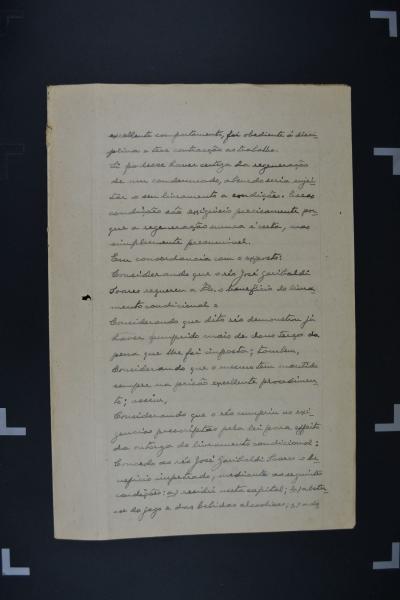 excellente comportamento, foi obediente á disci-
plina e teve contracção ao trabalho.
Si podesse haver certeza da regeneração
de um condemnado, absurdo seria sujei-
tar o seu livramento a condições. Essas
condições são exigiveis precisamente por-
que a regeneração nunca é certa, mas
simplesmente presumivel.
Em concordancia com o exposto:
Considerando que o réo José Garibaldi
Soares requereu a o beneficio do livra-
mento condicional;
Considerando que dito réo demonstrou já
haver cumprido mais de dous terços da
pena que lhe foi imposta; tambem,
Considerando que o mesmo tem mantido
sempre na prisão excellente procedimen-
to; assim,
Considerando que o réo cumpriu as exi-
gencias prescriptas pela lei para effeito
da outorga do livramento condicional:
Concedo ao réo José Garibaldi Soares o be-
neficio impetrado, mediante as seguintes
condições: a) residir nesta capital; b) abster-
se do jogo e das bebidas alcoolicas; c)